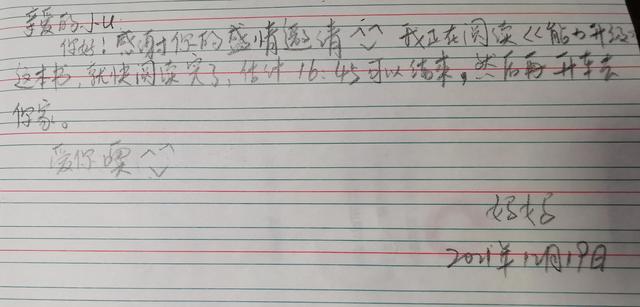 亲爱的小U
你好！感谢你的盛情邀请^^ 我正在阅读《能力升级》
这本书，就快阅读完了，估计16:45可以结束，然后再开车去
你家。
爱你哟^^
好好
2021年12月19日